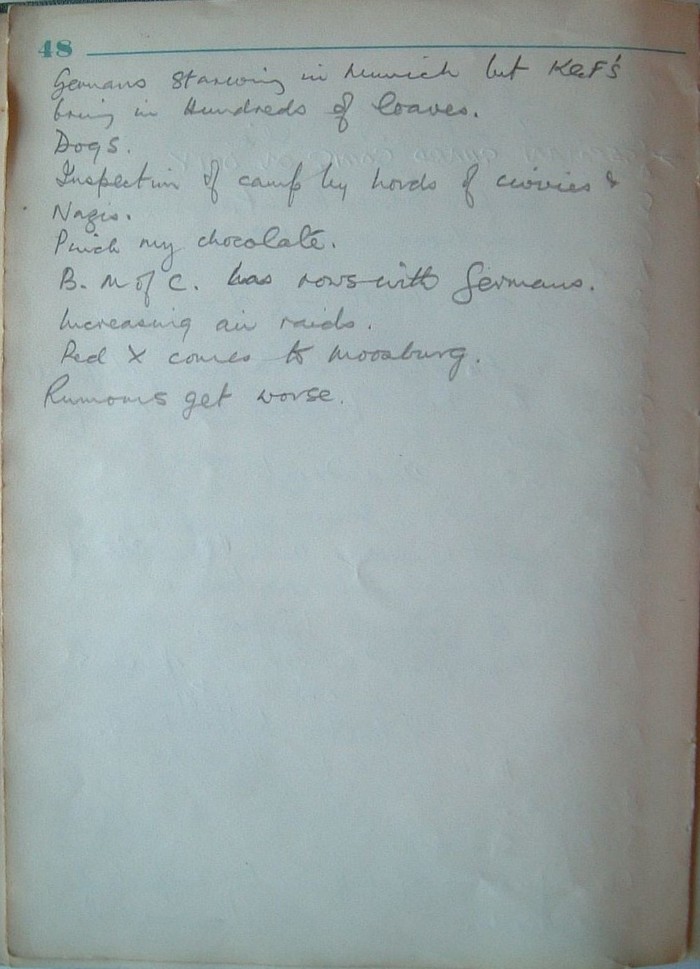 48
Germans starving in Munich but KGF's
bring in Hundreds of loaves.
Dogs.
Inspection of camp by hords of civvies &
Nazis.
Pinch my chocolate.
B. M of C. has rows with Germans.
Increasing air raids.
Red X comes to Moosburg.
Rumours get worse.